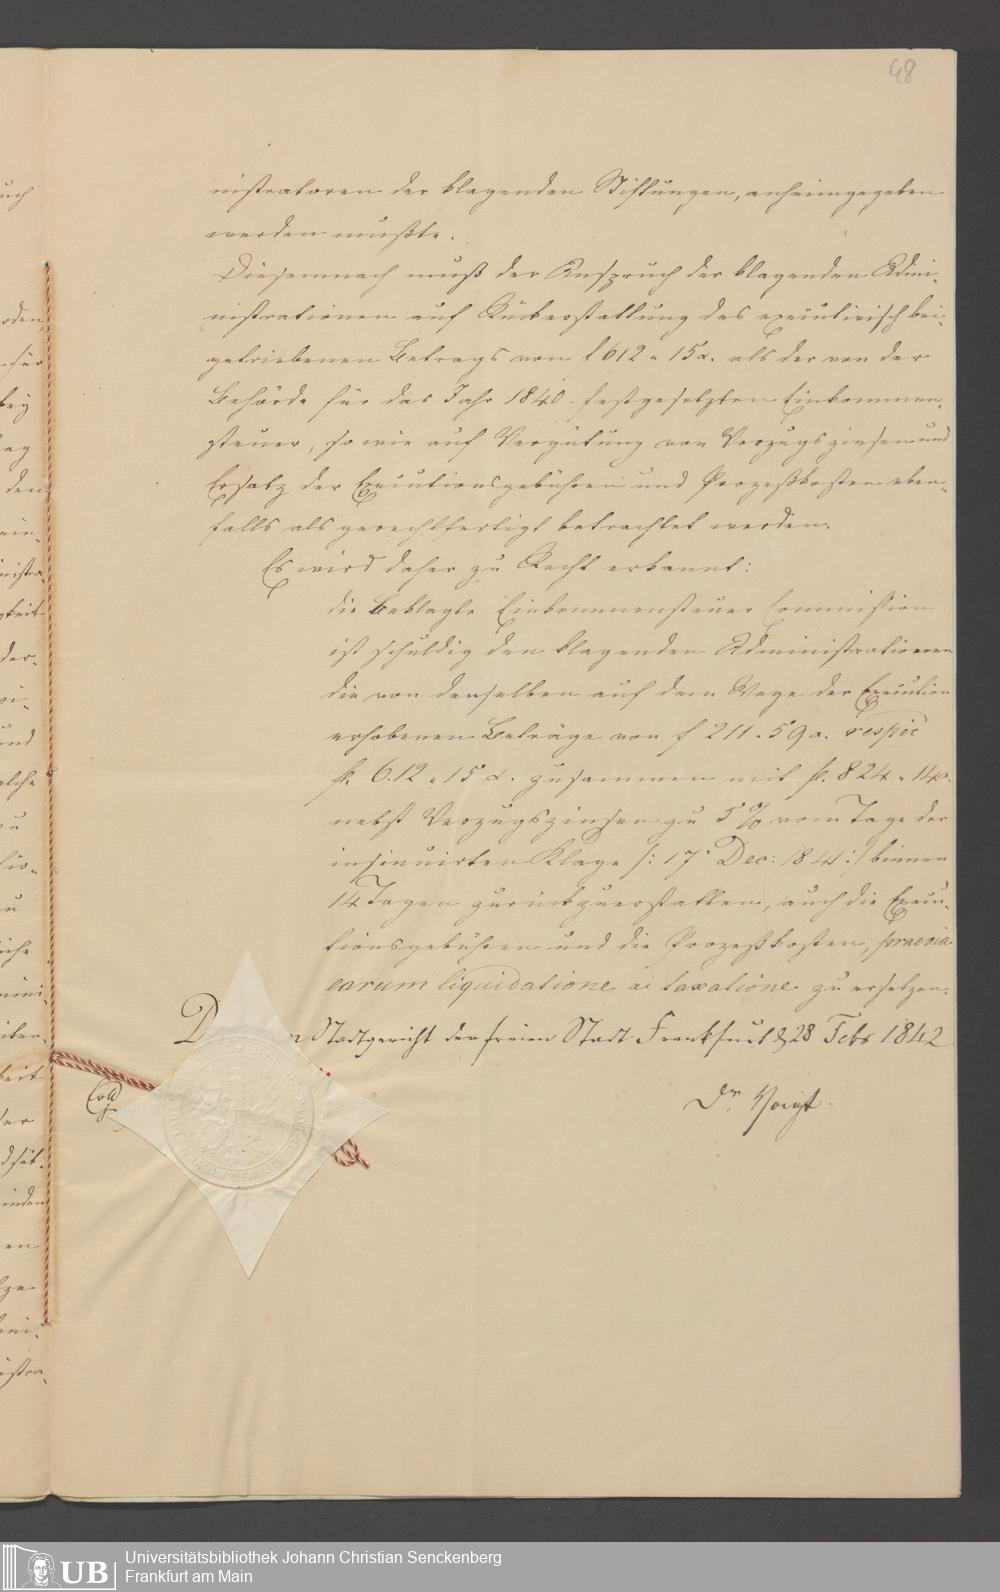 48
nistratoren der klagenden Stiftungen, anheimgegeben
werden mußte.
Diesemnach muß der Anspruch der klagenden Admi-
nistrationen auf Rückerstattung des executivisch bei-
getriebenen Betrags von f 612 " 15 x. als der von der
Behörde für das Jahr 1840 festgesetzten Einkommen-
steuer, so wie auf Vergütung von Verzugszinsen und
Ersatz der Executionsgebühren und Prozeßkosten eben-
falls als gerechtfertigt betrachtet werden.
Es wird daher zu Recht erkannt:
die Beklagte Einkommensteuer Commission
ist schuldig den klagenden Administrationen
die von denselben auf dem Wege der Execution
erhobenen Beträge von f 211. 59 x. respic
fl. 612 " 15 x. zusammen mit fl. 824 " 14 x.
nebst Verzugszinsen zu 5 % vom Tage der
insinuirten Klage /: 17. Dec: 1841 :/ binnen
14 Tagen zurückzuerstatten, auch die Execu-
tionsgebühren und die Prozeßkosten, praevia
earum liquidatione ac taxatione zu ersetzen.
Stadtgericht der freien Stadt Frankfurt d. 28 Febr 1842
Dr. Voigt.
Coll
UB
Universitätsbibliothek Johann Christian Senckenberg
Frankfurt am Main